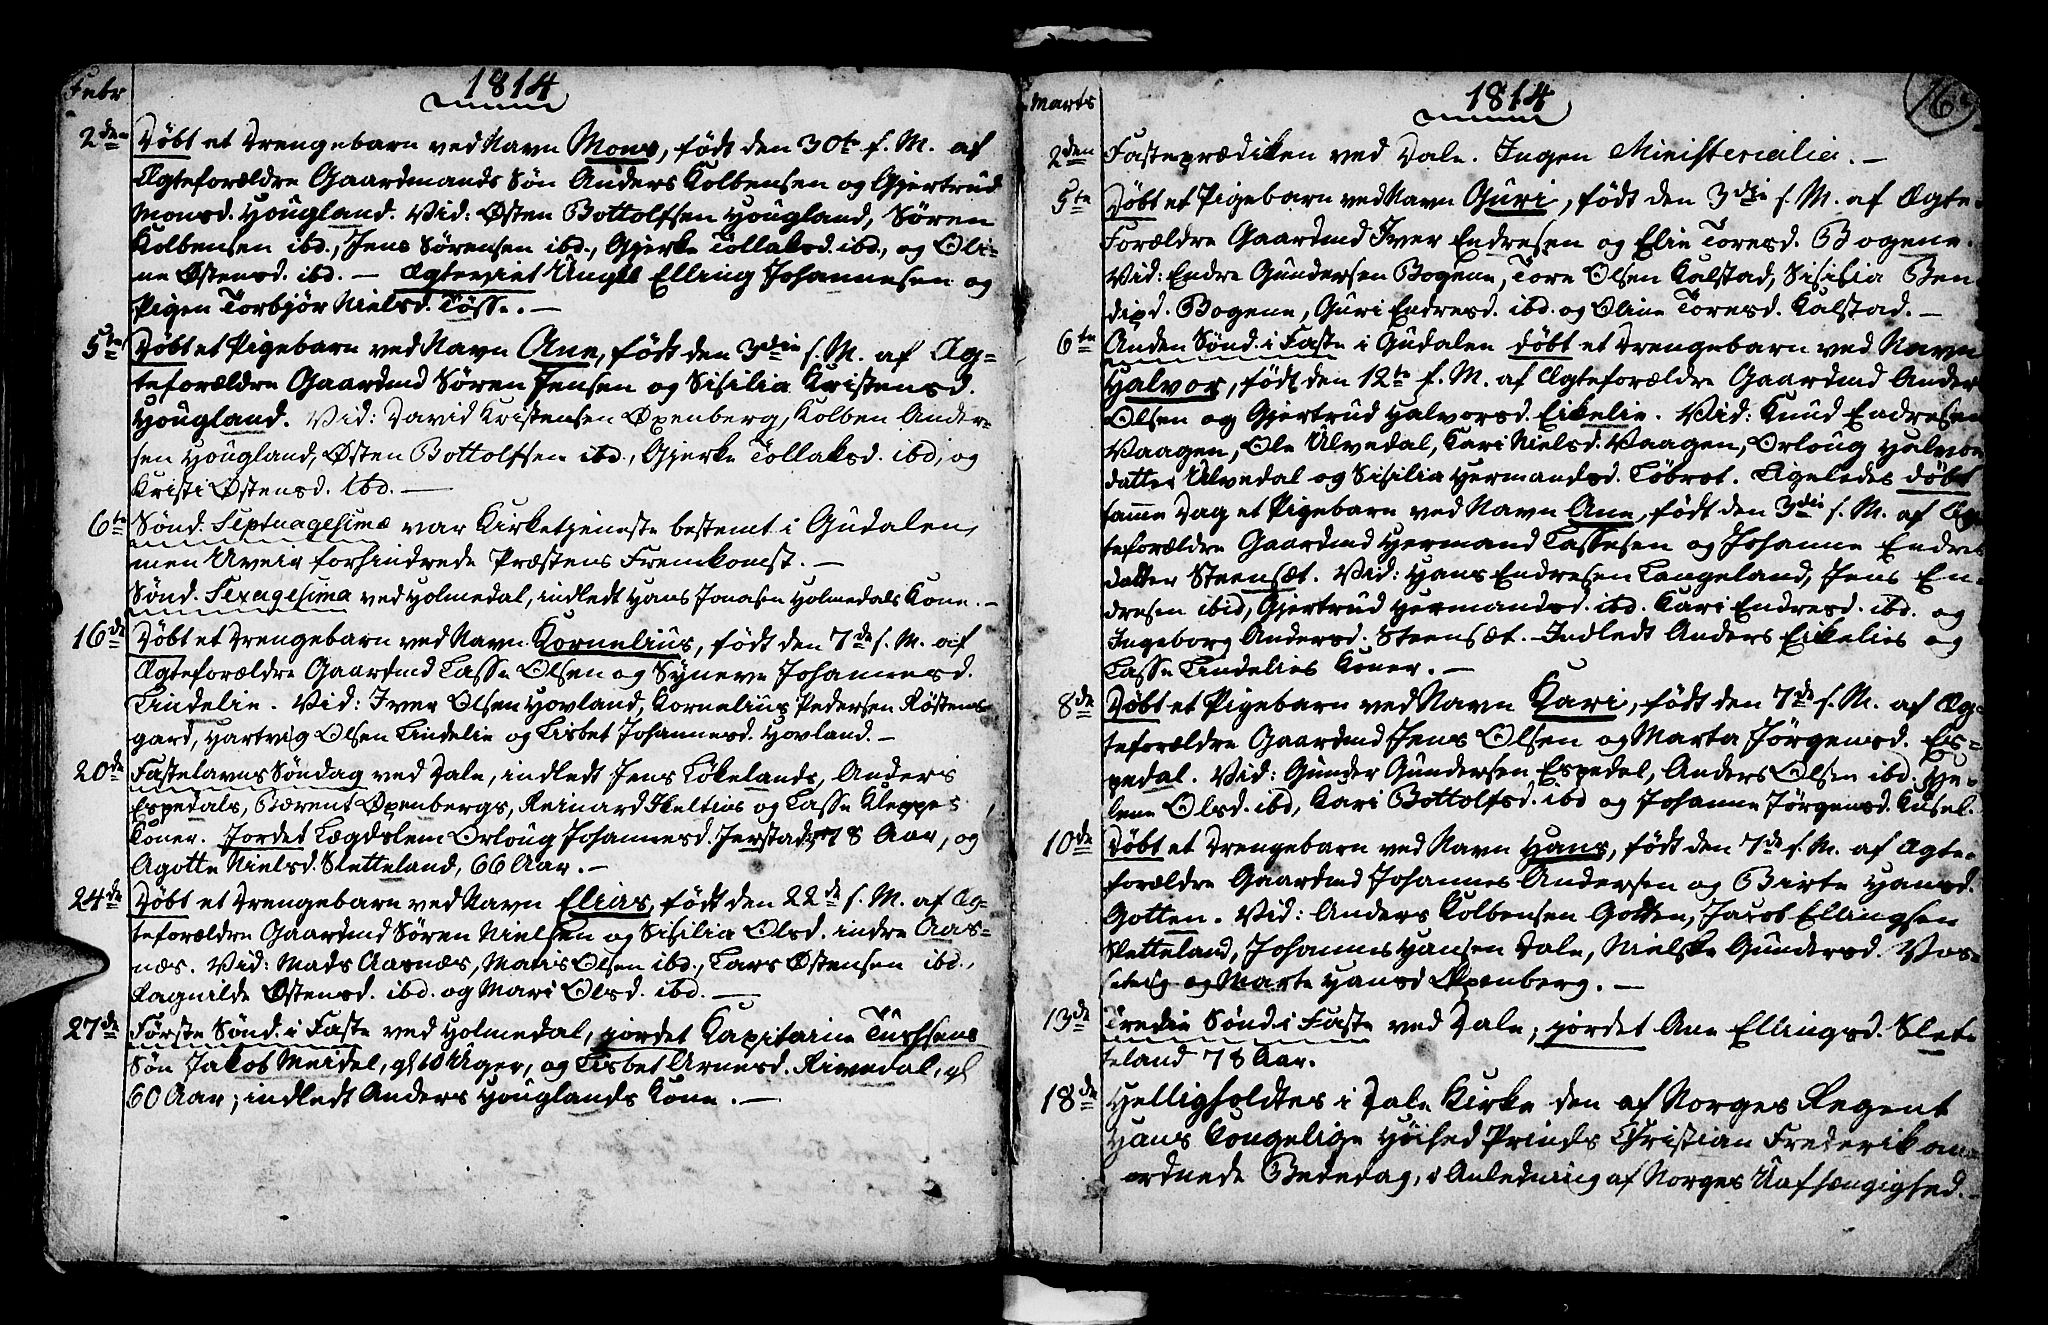 Febr
1814
2den Döbt et Drengebarn ved Navn Mons, födt den 30te f. M. af
Ægteforældre Gaardmands Sön Anders Kolbensen og Gjertrud
Monsd. Hougland. Vid: Østen Bottolfsen Hougland, Sören
Kolbensen ibd., Jens Sörensen ibd., Gjerke Tollaksd. ibd., og Oli-
ne Østensd. ibd. — Ægteviet Ungk Elling Johannesen og
Pigen Torbjör Nielsd. Tösse. —
5te Döbt et Pigebarn ved Navn Ane, födt den 3die s. M. af Æg-
teforældre Gaardmd Sören Jensen og Sisilia Kristensd.
Hougland. Vid: David Kristensen Øxenberg, Kolben Ander-
sen Hougland, Østen Bottolfsen ibd., Gjerke Tollaksd. ibd, og
Kristi Østensd. ibd. —
6te Sönd. Septuagesimæ var Kirketjeneste bestemt i Gudalen,
men Uveir forhindrede Præstens Fremkomst. —
Sönd. Sexagesima ved Holmedal, indledt Hans Jonasen Holmedals Kone. —
16de Döbt et Drengebarn ved Navn Kornelius, födt den 7de s. M. af
Ægteforældre Gaardmd Lasse Olsen og Synneve Johannesd.
Lindelie. Vid: Iver Olsen Hovland, Kornelius Pedersen Röstens-
gard, Hartvig Olsen Lindelie og Lisbet Johannesd. Hovland. —
20de Fastelavns Söndag ved Dale, indledt Jens Lökelands, Anders
Espedals, Bærent Øxenbergs, Reinard Heltins og Lasse Kleppes
Koner. Jordet Lægdslem Orloug Johannesd. Jerstad, 78 Aar, og
Agotte Nielsd. Sletteland, 66 Aar. —
24de Döbt et Drengebarn ved Navn Elias, födt den 22de s. M. af Æg-
teforældre Gaardmd Sören Nielsen og Sisilia Olsd. indre Aas-
næs. Vid: Mads Aasnæs, Mons Olsen ibd., Lars Østensen ibd.,
Ragnilde Østensd. ibd. og Mari Olsd. ibd. —
27de Förste Sönd. i Faste ved Holmedal, jordet Kapitaine Tuchsens
Sön Jakob Meidel, gl 10 Uger, og Lisbet Arnesd. Rivedal, gl
60 Aar; indledt Anders Houglands Kone. —
Marts
1814
16
2den Fasteprædiken ved Dale. Ingen Ministerialia. —
5te Döbt et Pigebarn ved Navn Guri, födt den 3die s. M. af Ægte-
Forældre Gaardmd Iver Endresen og Elie Toresd. Bogene.
Vid: Endre Gundersen Bogene, Tore Olsen Kalstad, Sisilia Ben
dixd. Bogene, Guri Endresd. ibd. og Oline Toresd. Kalstad. —
6te Anden Sönd. i Faste i Gudalen döbt et Drengebarn ved Navn
Halvor, födt den 12te f. M. af Ægteforældre Gaardmd Anders
Olsen og Gjertrud Halvorsd. Eikelie. Vid: Knud Endresen
Vaagen, Ole Ulvedal, Kari Nielsd. Vaagen, Orloug Halvors
datter Ulvedal og Sisilia Hermandsd. Löbrot. Ligeledes döbt
samme Dag et Pigebarn ved Navn Ane, födt den 3die s. M. af Æg
teforældre Gaardmd Hermand Lassesen og Johanne Endres
datter Steensæt. Vid: Hans Endresen Langeland, Jens En-
dresen ibid, Gjertrud Hermandsd. ibd. Kari Endresd. ibd. og
Ingeborg Andersd. Steensæt. Indledt Anders Eikelies og
Lasse Lindelies Koner. —
8de Döbt et Pigebarn ved Navn Kari, födt den 7de s. M. af Æg-
teforældre Gaardmd Jens Olsen og Marta Jörgensd. Es-
pedal. Vid: Gunder Gundersen Espedal, Anders Olsen ibd. He-
lene Olsd. ibd, Kari Bottolfsd. ibd og Johanne Jörgensd. Kusel.
10de Döbt et Drengebarn ved Navn Hans, födt den 7de s. M. af Ægte-
forældre Gaardmd Johannes Andersen og Birte Hansd.
Gotten. Vid: Anders Kolbensen Gotten, Jacob Ellingsen
Sletteland, Johannes Hansen Dale, Nielske Gundersd. Vos-
og Marte Hansd Øxenberg. —
13de Tredie Sönd. i Faste ved Dale, jordet Ane Ellingsd. Slet-
teland 78 Aar.
18de Helligholdtes i Dale Kirke den af Norges Regent
Hans Kongelige Höihed Prinds Christian Frederik an
ordnede Bededag, i Anledning af Norges Uafhængighed. —